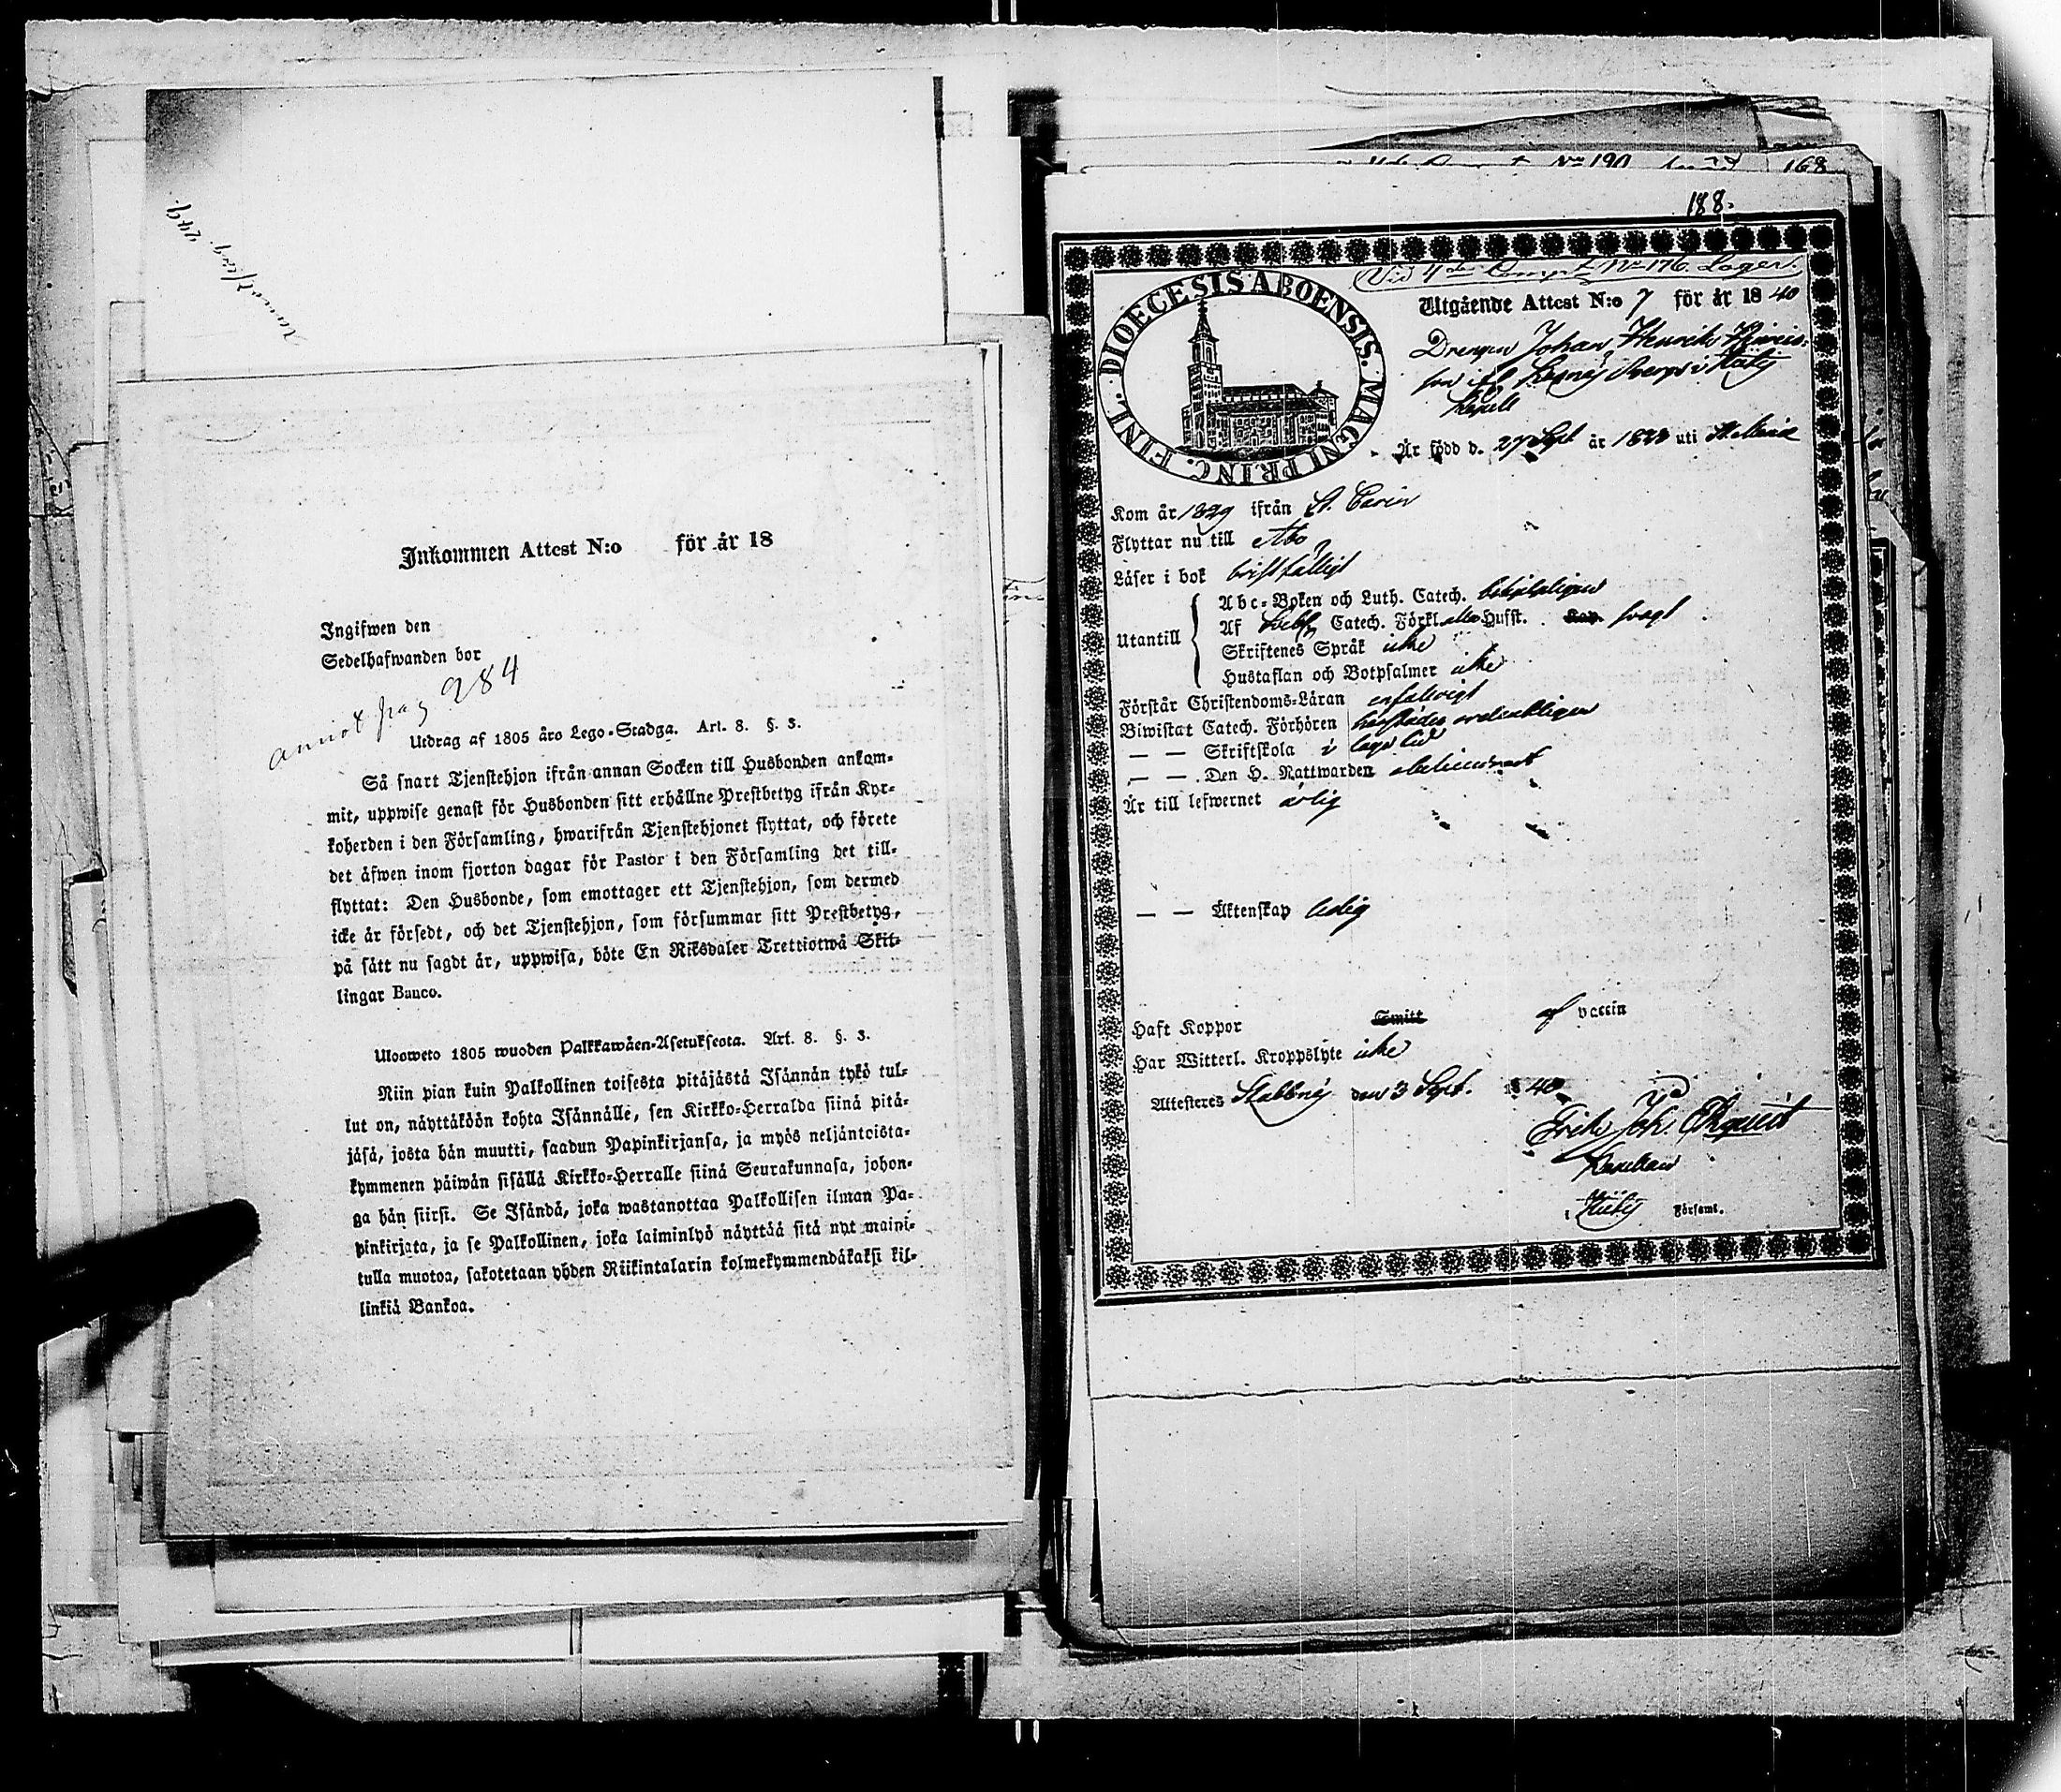 annot pag. 249.
Inkommen Attest N:o för år 18
Ingifwen den
Sedelhafwanden bor
annot pag 284
Utdrag af 1805 års Lego-Stadga. Art. 8. §. 3.
Så snart Tjenstehjon ifrån annan Socken till Husbonden ankom-
mit, uppwise genast för Husbonden sitt erhållne Prestbetyg ifrån Kyr-
koherden i den Församling, hwarifrån Tjenstehjonet flyttat, och förete
det äfwen inom fjorton dagar för Pastor i den Församling det till-
flyttat: Den Husbonde, som emottager ett Tjenstehjon, som dermed
icke är försedt, och det Tjenstehjon, som försummar sitt Prestbetyg,
på sätt nu sagdt är, uppwisa, böte En Riksdaler Trettiotwå Skil-
lingar Banco.
Uloosweto 1805 wuoden Palkkawäen-Asetuksesta. Art. 8. §. 3.
Niin pian kuin Palkollinen toisesta pitäjästä Isännän tykö tul-
lut on, näyttäköön kohta Isännälle, sen Kirkko-Herralda siinä pitä-
jäsä, josta hän muutti, saadun Papinkirjansa, ja myös neljäntoista-
kymmenen päiwän sisällä Kirkko-Herralle siinä Seurakunnasa, johon-
ga hän siirsi. Se Isändä, joka wastanottaa Palkollisen ilman Pa-
pinkirjata, ja se Palkollinen, joka laiminlyö näyttää sitä nyt maini-
tulla muotoa, sakotetaan yhden Riikintalarin kolmekymmendäkaksi kil-
linkiä Bankoa.
No 190 168
188.
Vid 4de Comp. No 176. Lager.
DIOECESIS ABOENSIS. MAGNI PRINC. FINL.
Utgående Attest N:o 7 för år 1840
Drengen Johan Henrik Henrics-
son i
Kapell
Är född d. 27 Sept år uti St Marie
Kom år 1839 ifrån St. Carin
Flyttar nu till Abo
Läser i bok bristfälligt
Utantill Abc-Boken och Luth. Catech.
Af Catech. Förkl. Husst. swagt
Skriftenes Språk icke
Hustaflan och Botpsalmer icke
Förstår Christendoms-Läran enfaldigt
Biwistat Catech. Förhören härstädes ordentligen
— — Skriftskola i laga tid
— — Den H. Nattwarden
Är till lefwernet ärlig
— — Äktenskap ledig
Haft Koppor Smitt af vaccin
Har Witterl. Kroppslyte icke
Attesteres den 3 Sept. 1840
Erik Joh.
Kapellan
i Församl.